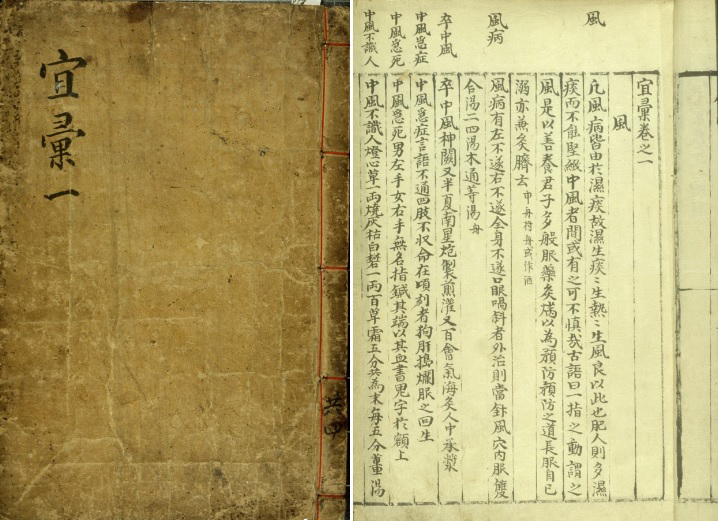 宜彙一
共四
風
風病
卒中風
中風急症
中風急死
中風不識人
宜彙卷之一
風
凡風病皆由於濕痰故濕生痰〻生熱〻生風良以此也肥人則多濕
痰而不能堅緻中風者間或有之可不慎哉古語曰一指之動謂之
風是以善養君子多般服藥灸焫以為預防預防之道長服自己
溺亦兼灸臍云
風病有左不遂右不遂全身不遂口眼喎斜者外治則當針風穴內服雙
合湯二四湯木通等湯
卒中風神闕又半夏南星炮製煎灌又百會氣海灸人中承漿
中風急症言語不通四肢不収命在頃刻者狗肝搗爛服之回生
中風急死男左手女右手無名指鍼其端以其血書鬼字於額上
中風不識人燈心草一兩燒灰枯白礬一兩百草霜五分共為末每五分薑湯